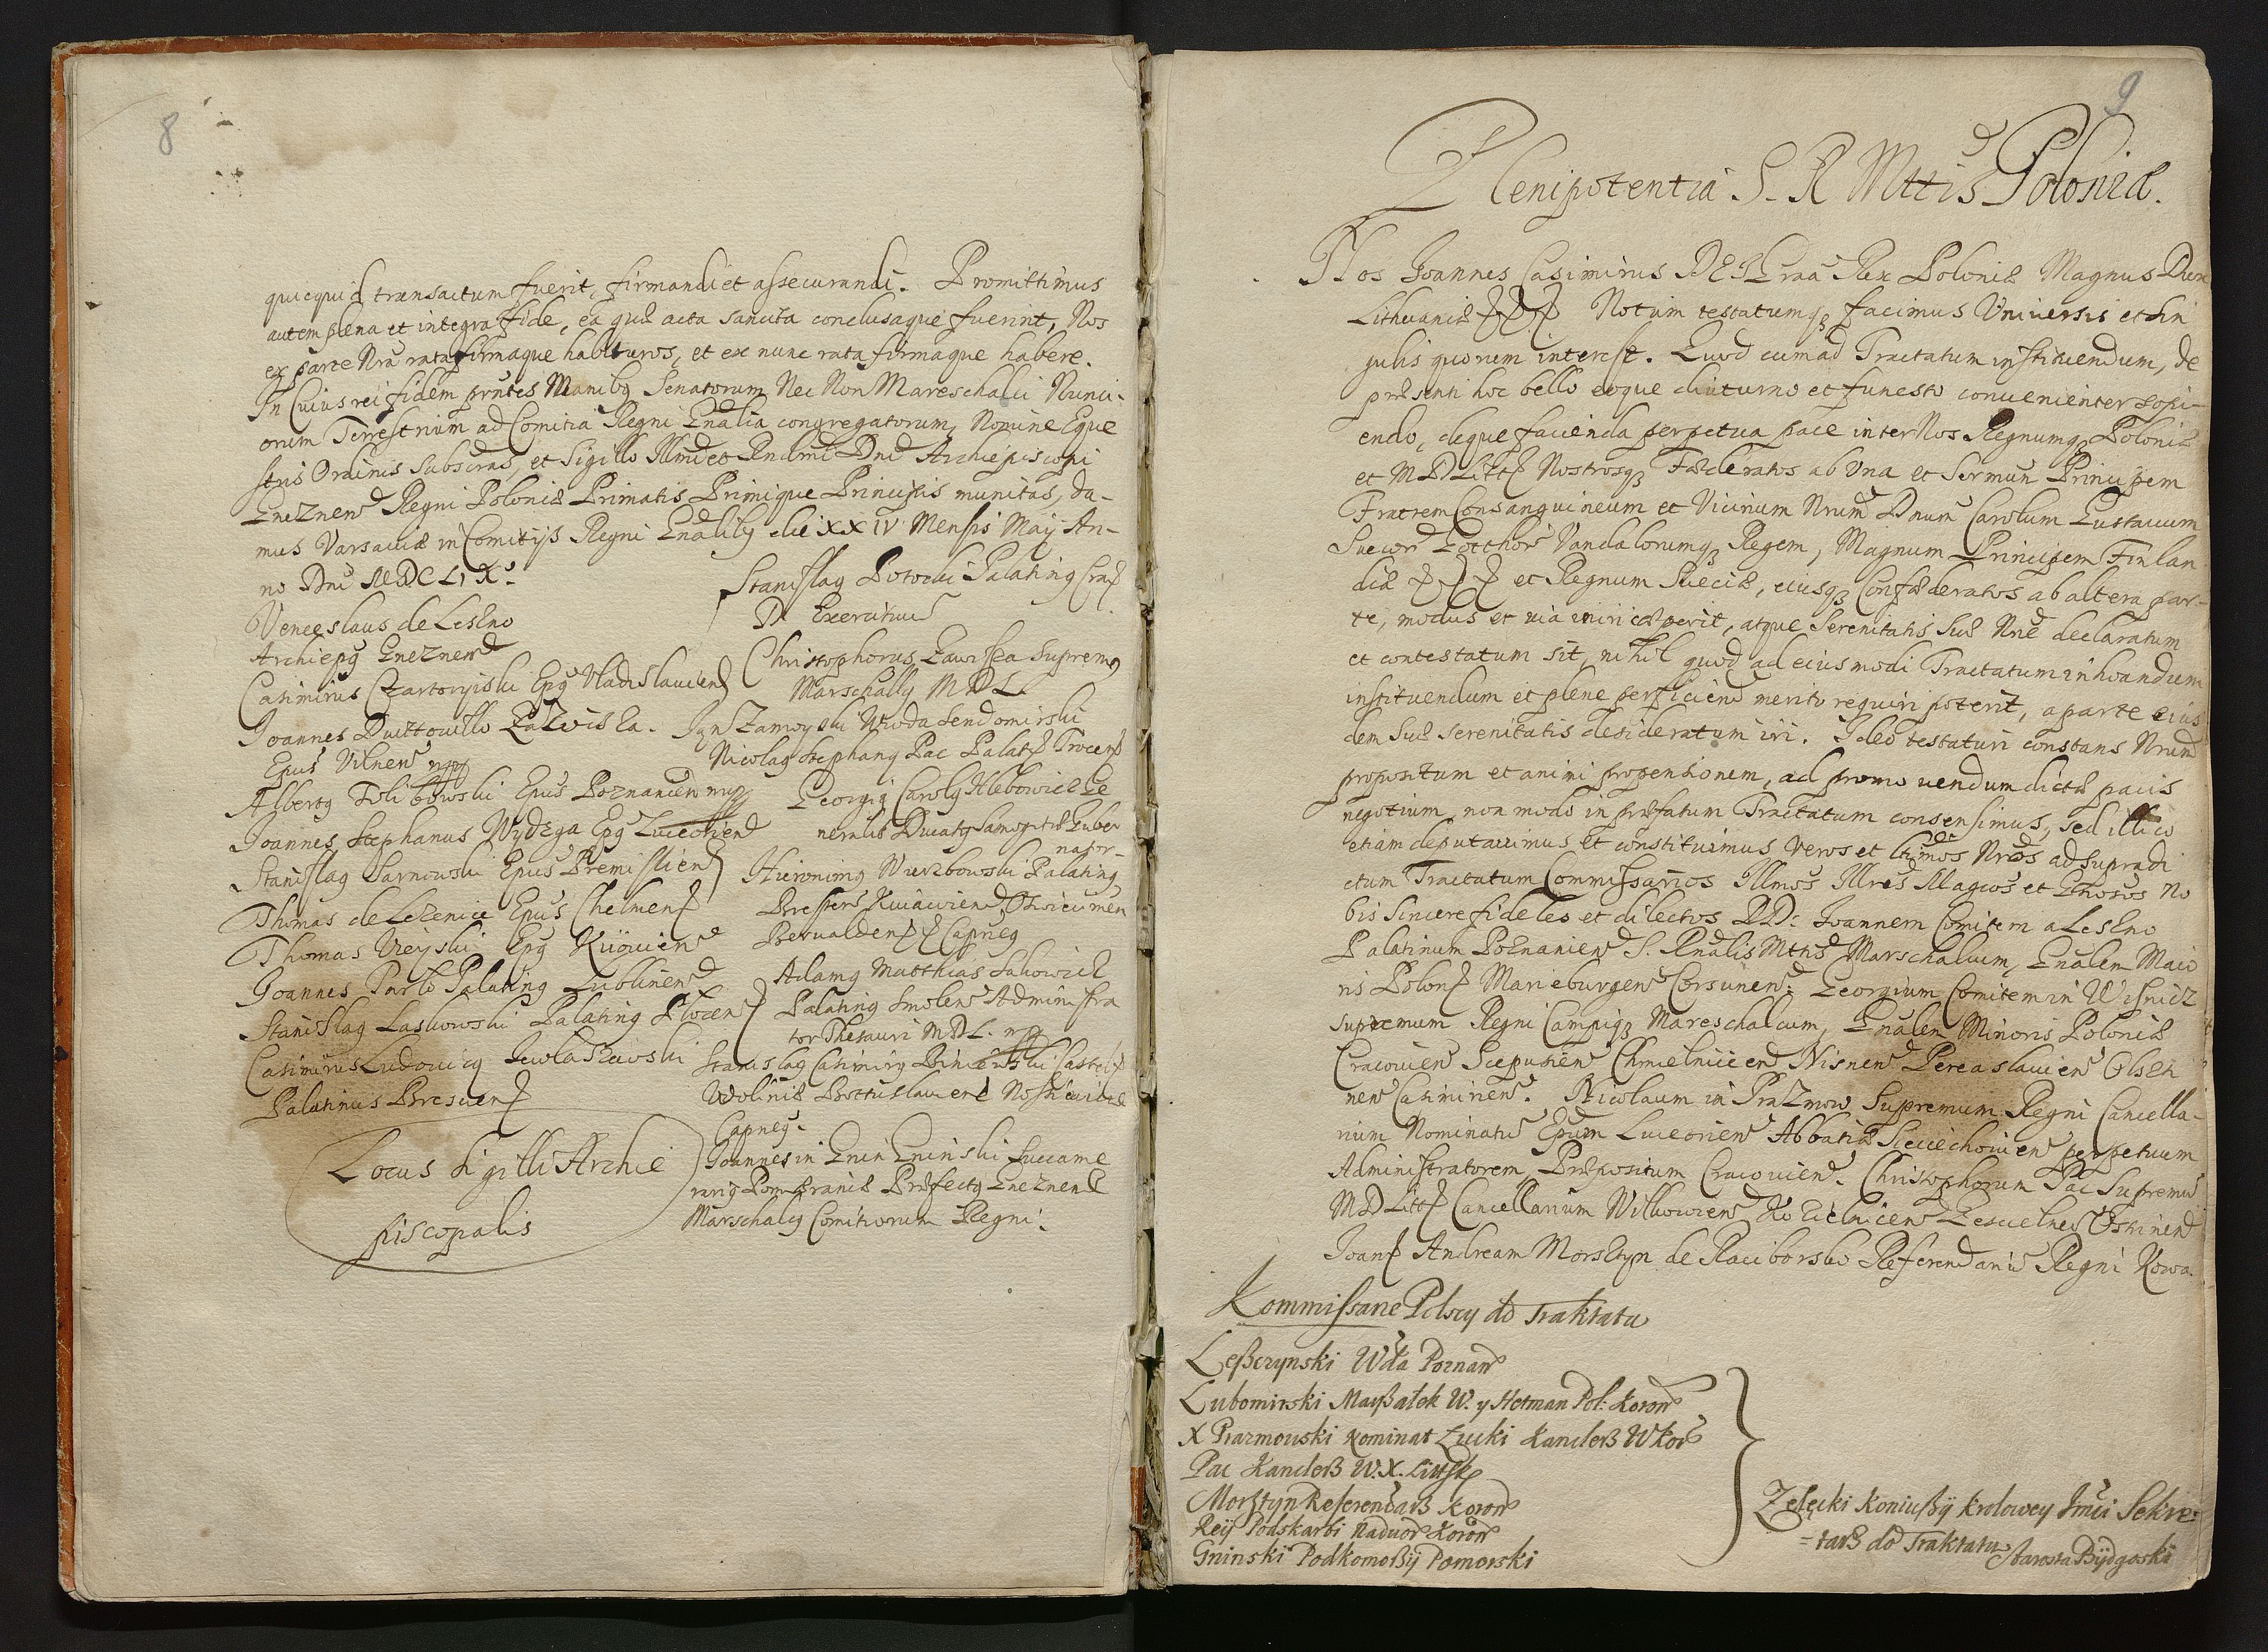 8
quicquid transactum fuerit, firmandi et assecurandi. Promittimus
autem plena et integra fide, ea quæ acta sancita conclusaque fuerint, Nos
ex parte Nra rata firmaque habituros, et ex nunc rata firmaque habere.
In Cuius rei fidem prntes Manibꝰ Senatorum Nec Non Mareschalci Nunci-
orum Terrestrium ad Comitia Regni Gnalia congregatorum, Nomine Eque
stris Ordinis Subscras, et Sigillo Illmi et Rndmi Dni Archiepiscopi
Gneznen Regni Poloniæ Primatis Primique Principis munitas, da-
mus Varsauiæ in Comitijs Regni Gnalibꝰ die XXIV Mensis Maij An-
no Dni MDCLIX.
Venceslaus de Leszno
Archiepꝰ Gneznen
Casimirus Czartoryiski Epꝰ Vladislauien
Joannes Dowttouillo Zawisza.
Epus Vilnen mpp
Albertꝰ Tolibowski Epus Poznanien mpp
Joannes Stephanus Wydzga Epꝰ Luceorien
Stanislaꝰ Sarnowski Epus Premislien
Thomas de Lezenice Epus Chelmen
Thomas Vieyski Epꝰ Kijouien
Joannes Tarlo Palatinꝰ Lublinen
Stanislaꝰ Laskowski Palatinꝰ Plocen
Casimirus Ludouicꝰ Iewlaszewski
Palatinus Brescien
Locus Sigilli Archie
piscopalis
Stanislaꝰ Potocki Palatinꝰ Crac
D Exercituu
Christophorus Zawissa Supremꝰ
Marschallꝰ MDL.
Jan Zamoyski Wwoda Sendomirski
Nicolaꝰ Stephanꝰ Pac Palat Trocen
Georgiꝰ Carolꝰ Hlebowicz Ge
neralis Ducatꝰ Samogitiæ Guber
nator-
Hieronimꝰ Wierzbowski Palatinꝰ
Bresten Kuiauien
Berualden Capneꝰ
Adamꝰ Matthias Sakowicz
Palatinꝰ Smolen Administra
tor Thesauri MDL. mpp
Stanislaꝰ Casimirꝰ Castel
Woliniæ
Capneꝰ.
Joannes in Gnin Gninski Succame
rariꝰ Pomeraniæ Præfectꝰ Gneznen
Marschalcꝰ Comitiorum Regni.
9
Plenipotentia S. R Mttis Poloniæ.
Nos Joannes Casimirus DEI Graa Rex Poloniæ Magnus Dux
Lithuaniæ Notum testatumqꝫ facimus Vniuersis et Sin
gulis quorum interest. Quod cum ad Tractatum instituendum, de
præsenti hoc bello eoque diuturno et funesto conuenienter sopi-
endo, deque facienda perpetua pace inter Nos Regnumqꝫ Poloniæ
et MD Litt Nostrosqꝫ Fæderatos ab Vna et Sermum Principem
Fratrem Consanguineum et Vicinum Nrum Dnum Carolum Gustauum
Suecor Gotthor Vandalorumqꝫ Regem, Magnum Principem Finlan
diæ et Regnum Sueciæ, eiusqꝫ Confæderatos ab altera par-
te, modus et uia iniri cæperit, atque Serenitatis Suæ Nne declaratum
et contestatum sit, nihil quod ad eiusmodi Tractatum inhoandum
instituendum et plene perficien merito requiri poterit, a parte eius
dem Suæ Serenitatis desideratum iri. Ideo testaturi constans Nrum
propositum et animi propensionem, ad promouendum dictæ pacis
negotium, non modo in præfatum Tractatum consensimus, sed illico
etiam deputauimus et constituimus Veros et ltimos Nros ad supradi
ctum Tractatum Commissarios Illmos Illres Magcos et Gnosos No
bis Sincere fideles et dilectos DD: Joannem Comitem a Leszno
Palatinum Poznanien S. Rnalis Mttis Marschalcum, Gnalem Maio
ris Polon Marieburgen Corsunen: Georgium Comitem in Wisnicz
supremum Regni Campiqꝫ Mareschalcum, Gnalem Minoris Poloniæ
Cracouien Scepusien Chmielnicen Nisnen Pereaslauien Olszti
nen Casimirien. Nicolaum in Prazmow Supremum Regni Cancella-
rium Nominatu Epum Luceorien Abbatiæ Sieciechouien perpetuum
Administratorem, Præpositum Cracouien. Christophorum Pac Supremu
MD Litt Cancellarium Wilkowien
Joan Andream Morsztyn de Raciborsko Referendariu Regni Kowa
Kommissarze Polscy do Traktatu
Leßczynski Wda Poznan
Lubomirski Marßałek W. y Hetman Pol: Koron
X Prazmouski Nominat Łucki Kanclerß W Kor
Pac Kanclerß W. X. Littsk
Morßtyn Referendarß Koron
Reÿ Podskarbi Nadwor Koron
Gninski Podkomoßÿ Pomorski
Zełęcki Koniußÿ krolowey Jmci Sekre-
-tarß do Traktatu Starosta Bÿdgoski